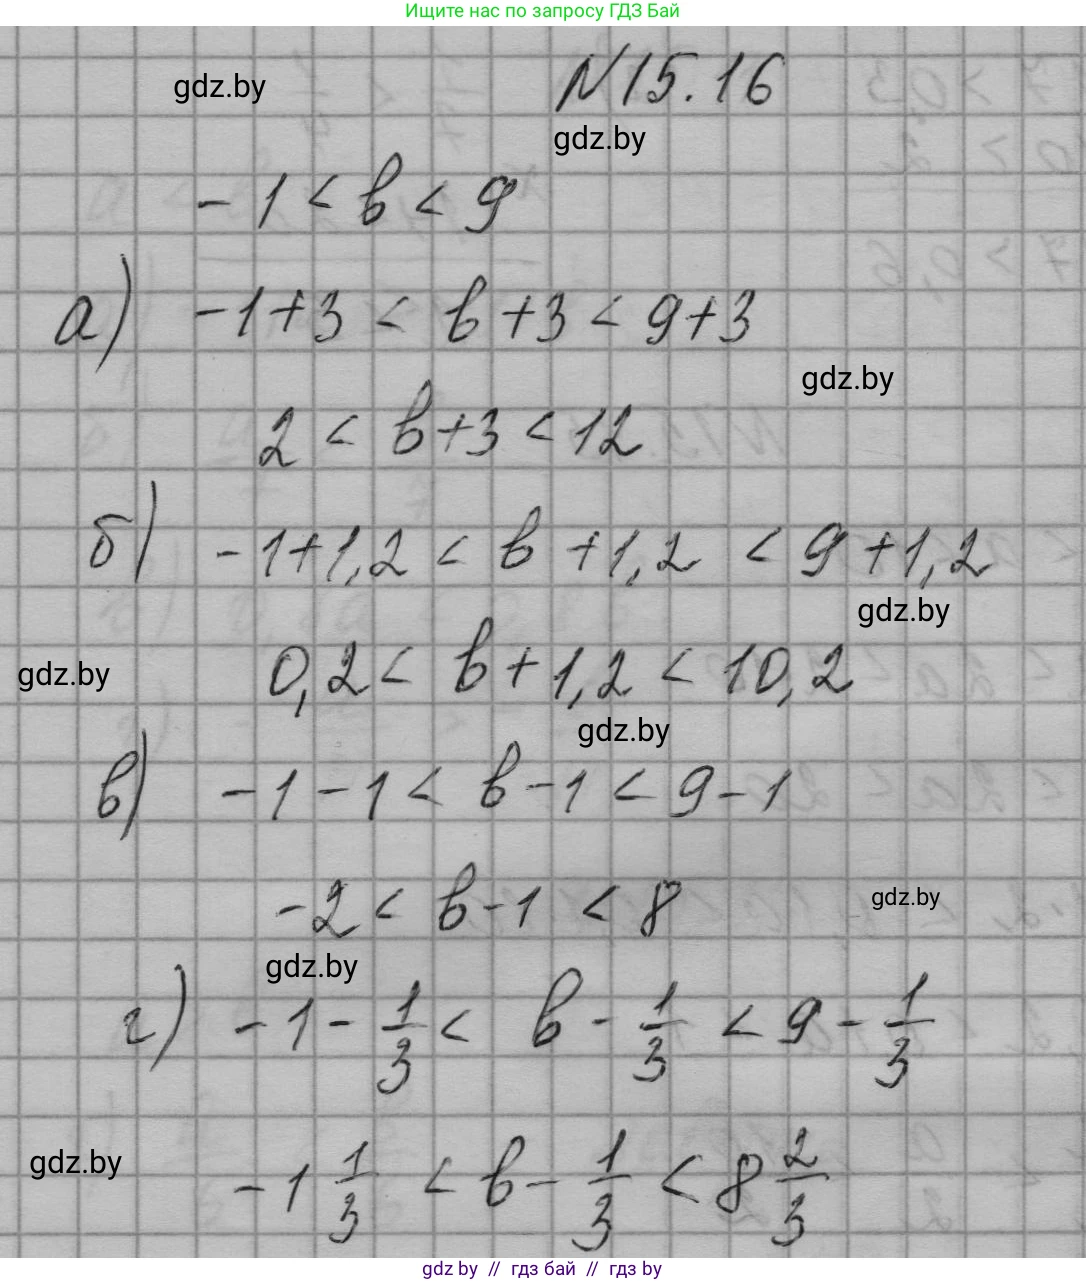 Ищите нас по запросу ГДЗ Бай
gdz.by
N15.16
gdz.by
-1 < b < 9
а) -1+3 < b+3 < 9+3
gdz.by
2 < b+3 < 12
б) -1+1,2 < b+1,2 < 9+1,2
gdz.by
gdz.by
0,2 < b+1,2 < 10,2
gdz.by
в) -1-1 < b-1 < 9-1
-2 < b-1 < 8
gdz.by
gdz.by
г) -1-1/3 < b-1/3 < 9-1/3
gdz.by
-1 1/3 < b-1/3 < 8 2/3
gdz by // гдз бай // гдз by